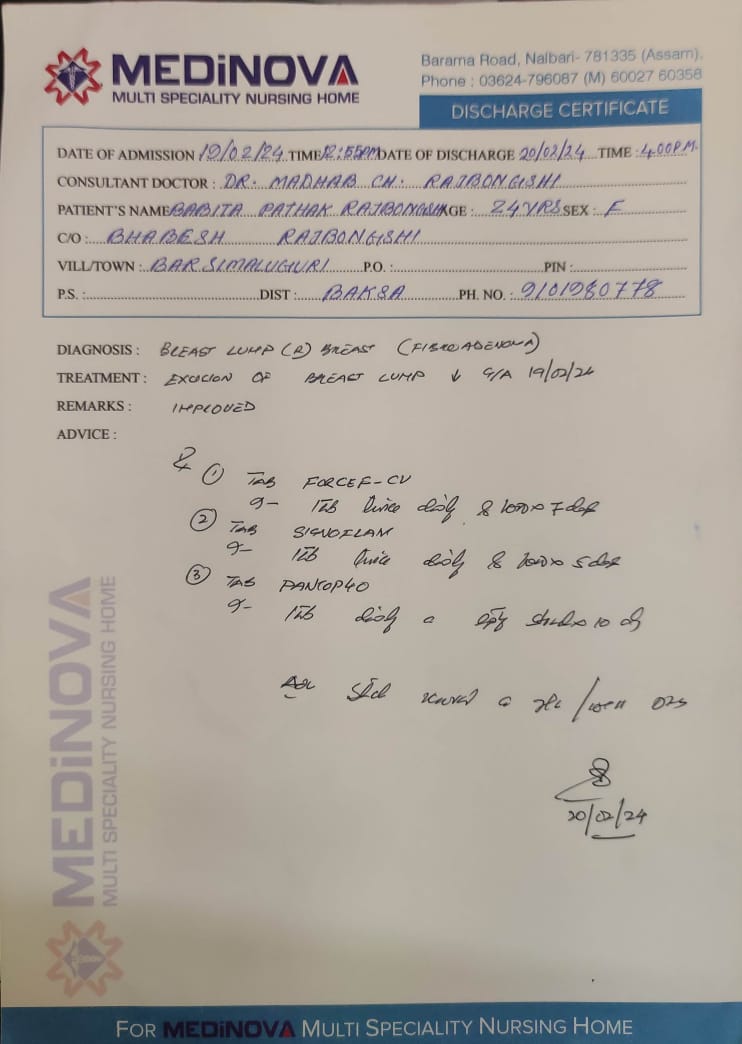 MEDiNOVA
MULTI SPECIALITY NURSING HOME
Barama Road, Nalbari- 781335 (Assam).
Phone : 03624-796087 (M) 60027 60358
DISCHARGE CERTIFICATE
DATE OF ADMISSION 19/02/24 TIME 12:55PM DATE OF DISCHARGE 20/02/24 TIME : 4.00P.M.
CONSULTANT DOCTOR : DR. MADHAB CH. RAJBONGISHI
PATIENT'S NAME BABITA PATHAK RAJBONGSHI AGE : 24 YRS SEX : F
C/O : BHABESH RAJBONGISHI
VILL/TOWN : BARSIMALUGURI P.O. : PIN :
P.S. : DIST : BAKSA PH. NO. : 9101980778
DIAGNOSIS : BREAST LUMP (R) BREAST (FIBROADENOMA)
TREATMENT : EXCICION OF BREAST LUMP ↓ G/A 19/02/24
REMARKS : IMPROVED
ADVICE :
① TAB FORCEF-CV
1 tab twice daily x 7 days
② TAB SIGNOFLAM
1 tab twice daily x 5 days
③ TAB PANTOP 40
1 tab daily empty x 10
Adv
20/02/24
MEDiNOVA
MULTI SPECIALITY NURSING HOME
FOR MEDiNOVA MULTI SPECIALITY NURSING HOME